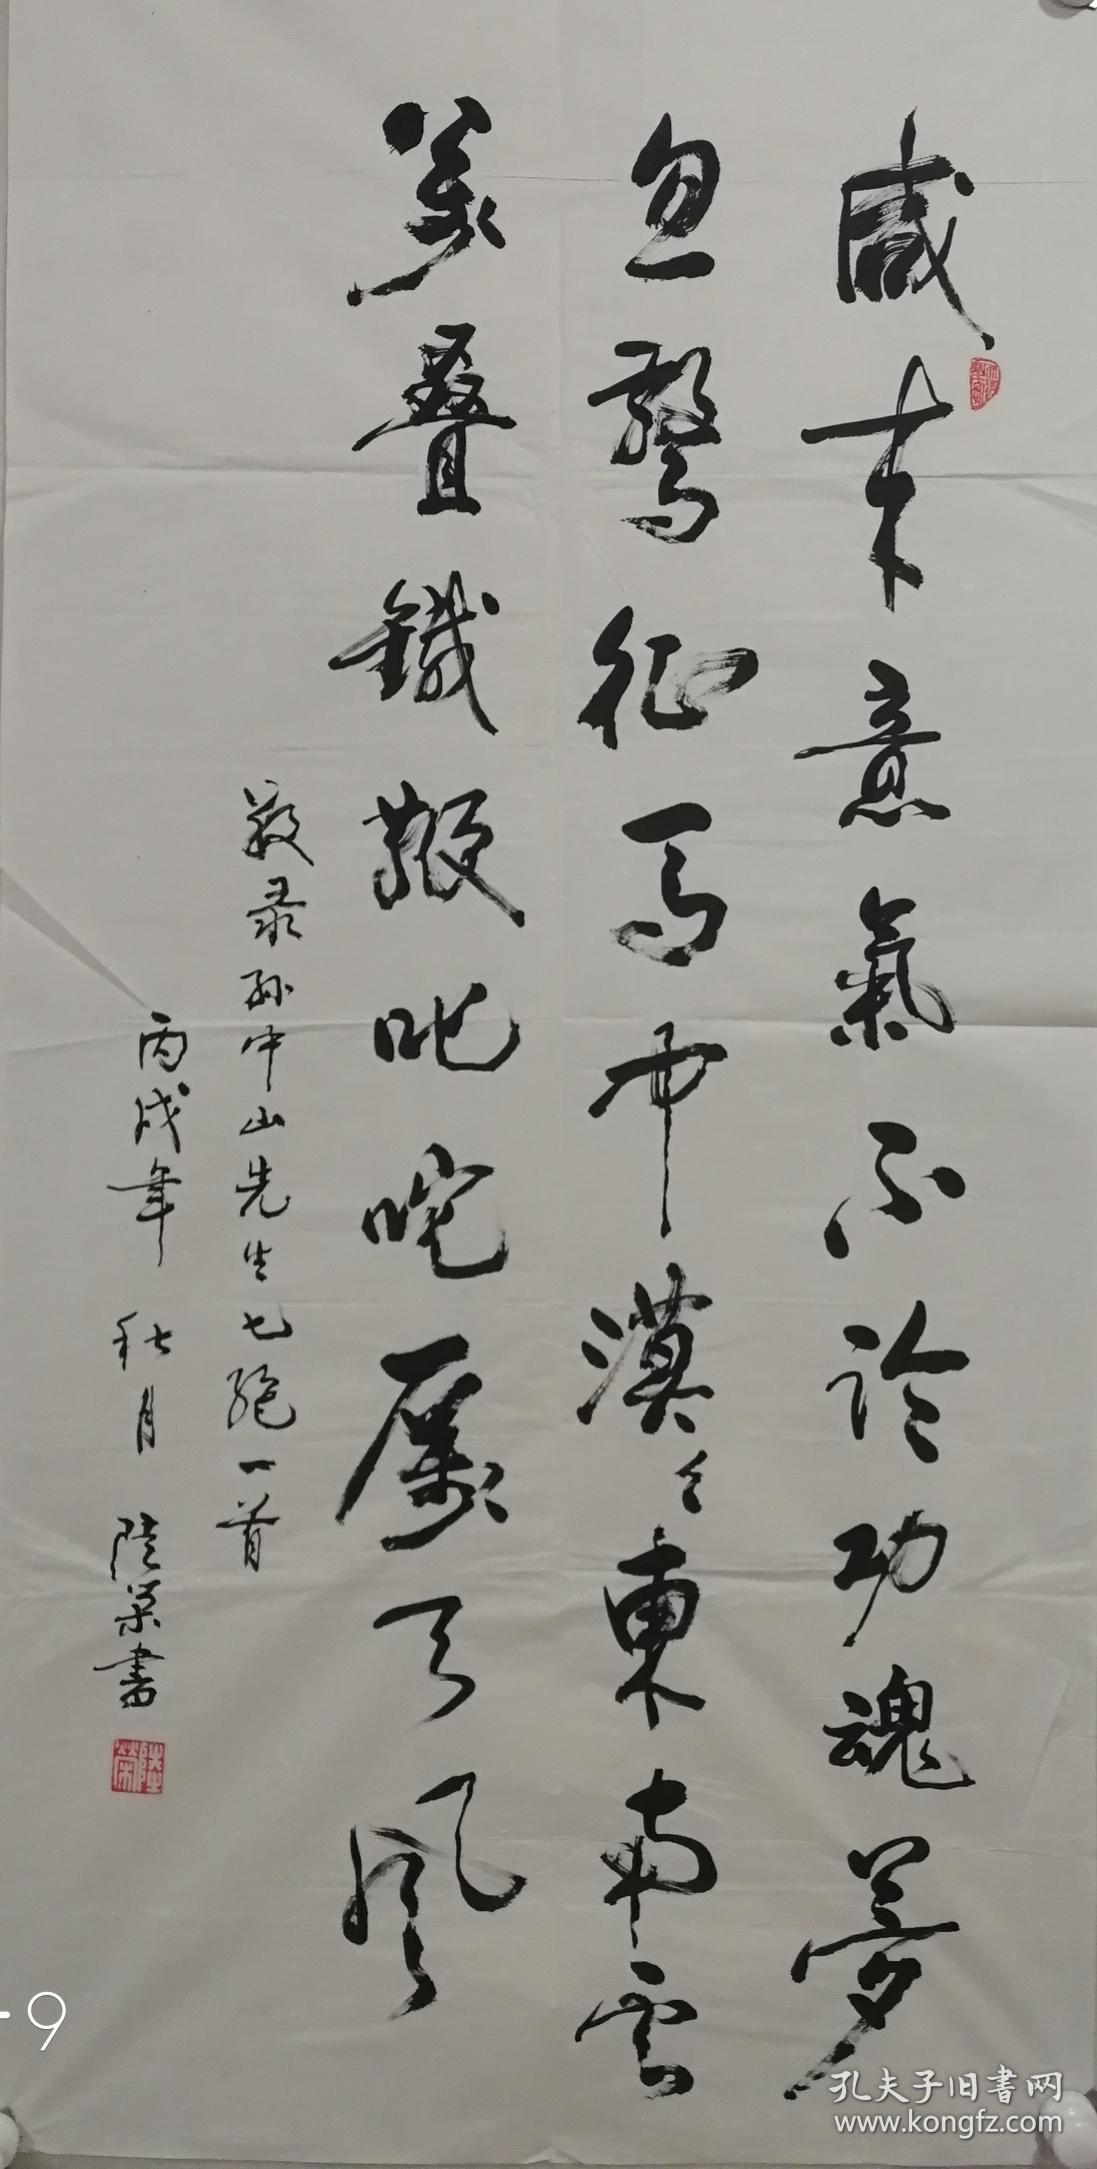 感来意氣不论功魂夢
忽驚征馬中漠々東南雲
萬叠鐵鞭叱咤厲天風
敬录孙中山先生七绝一首
丙戌年 秋月 陸荣書
陸荣
-9
孔夫子旧書网
www.kongfz.com